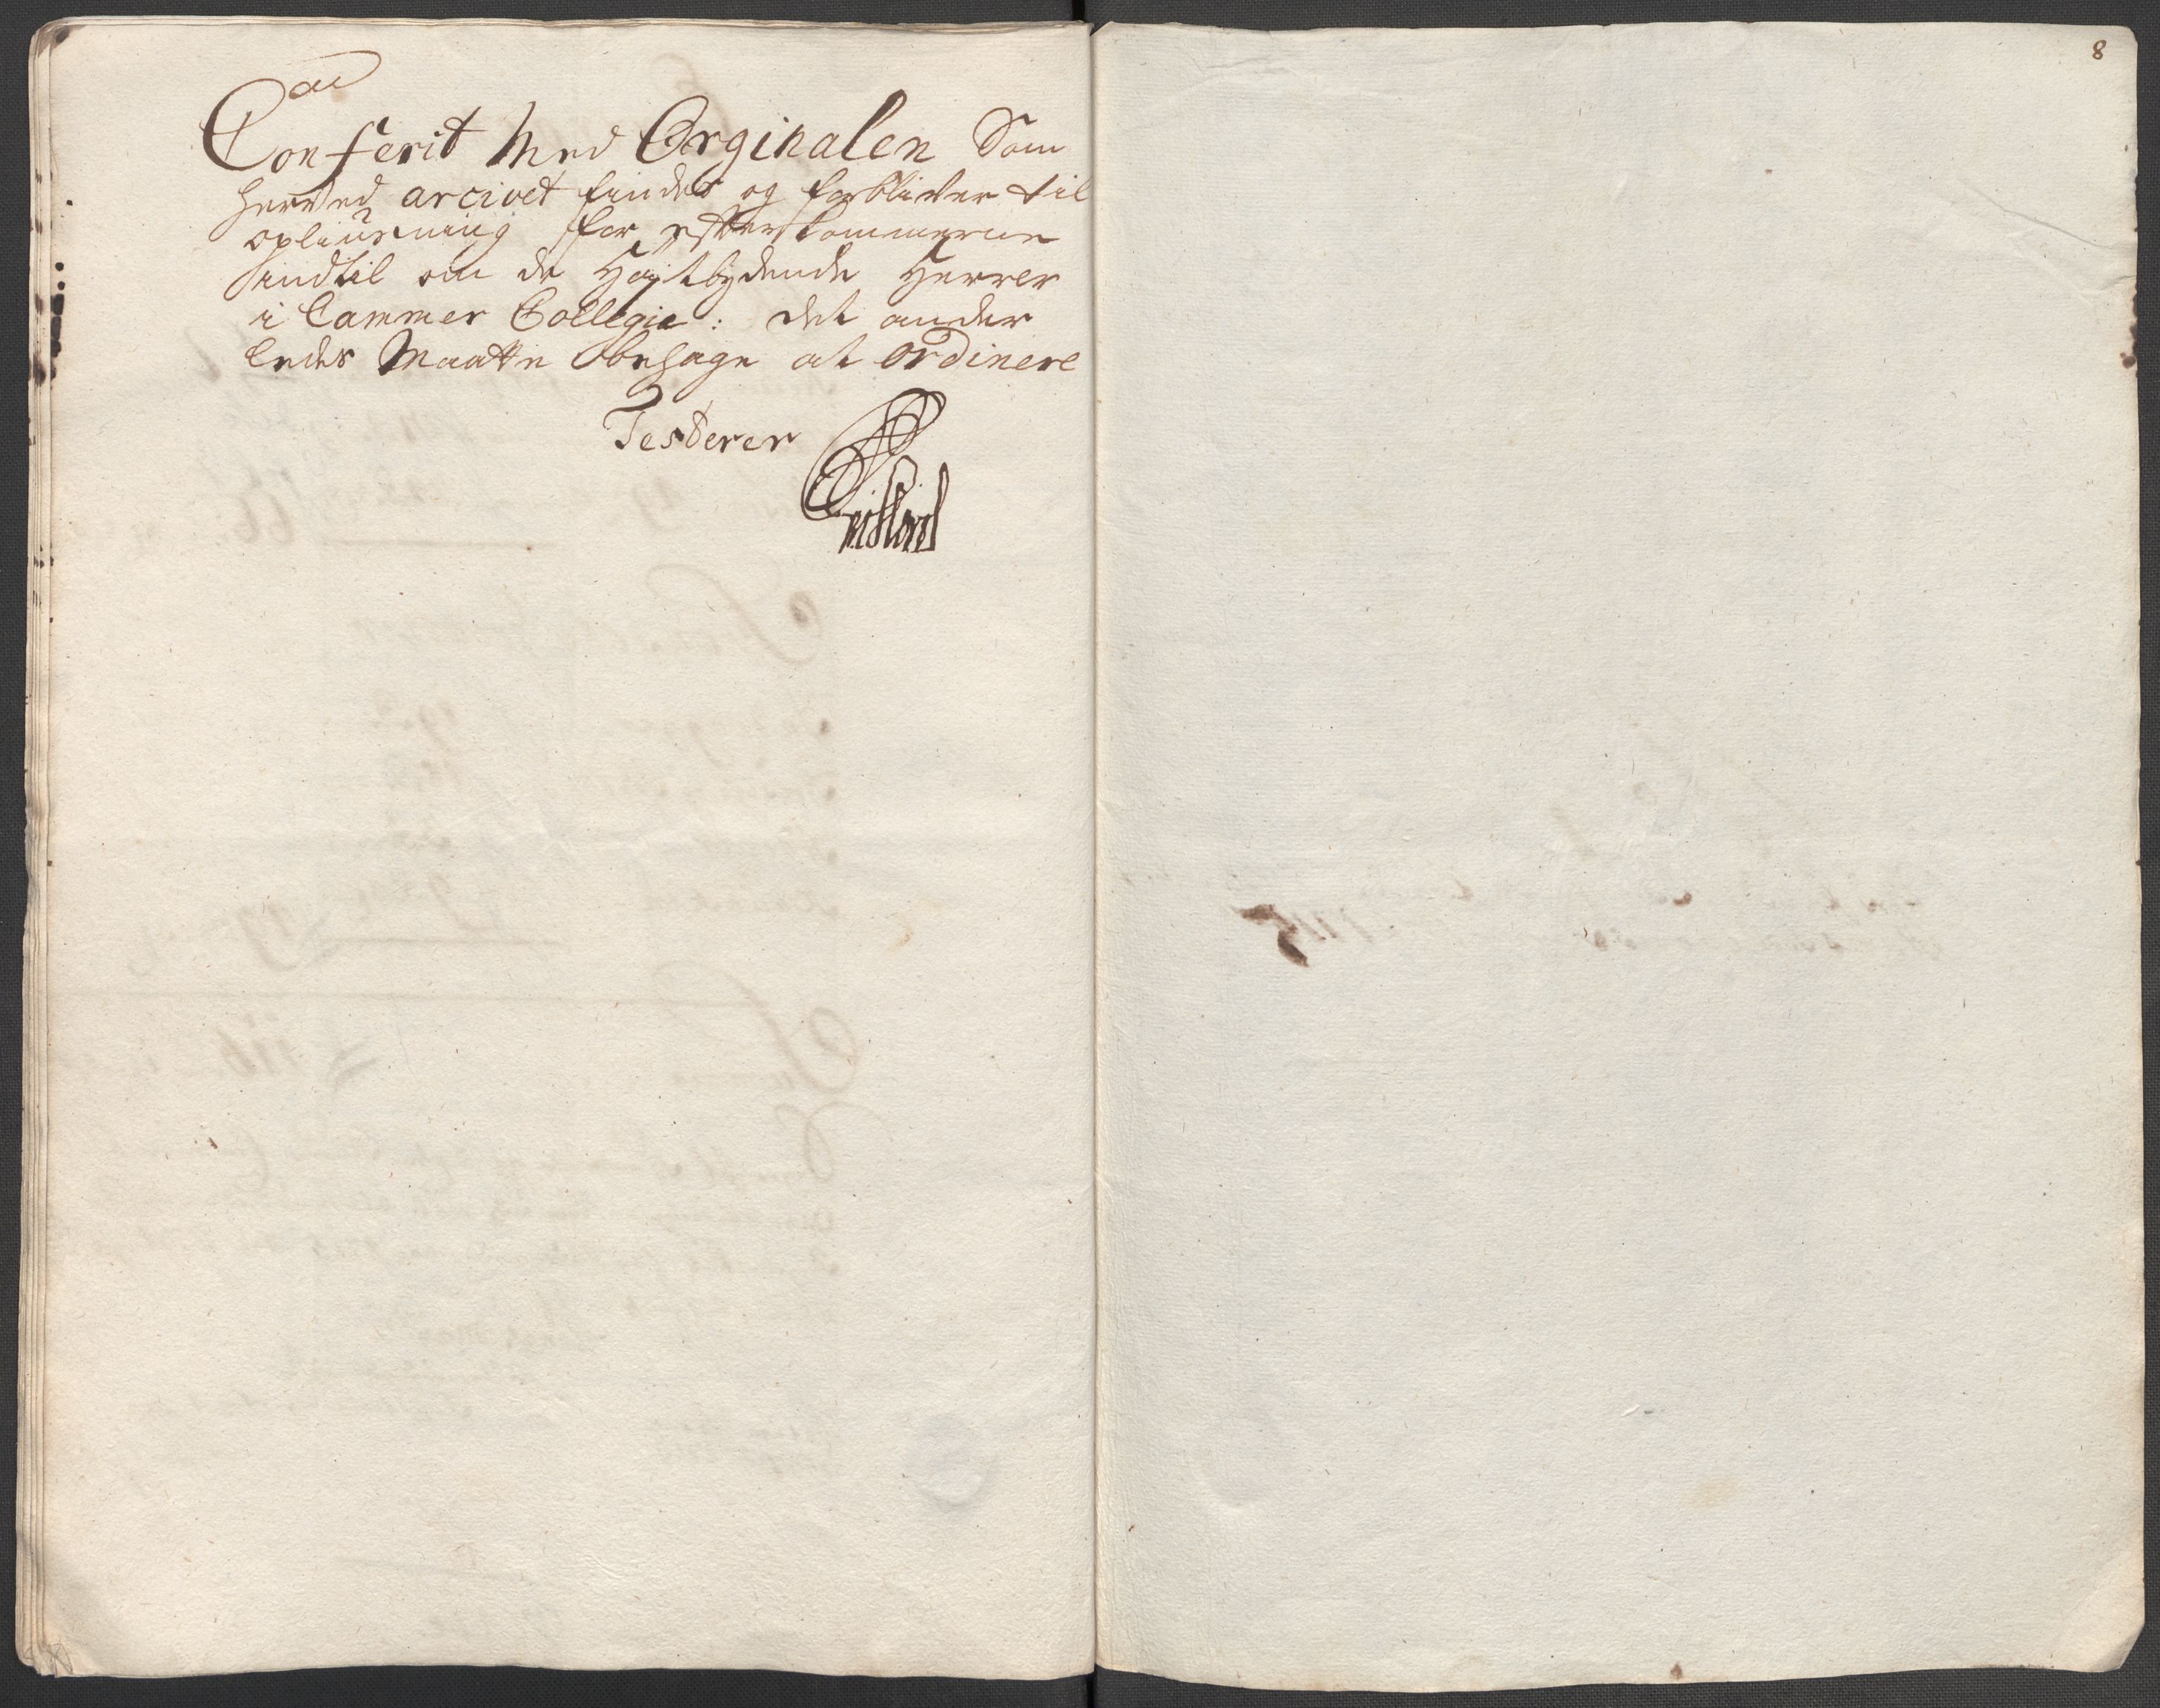 8
Conferit Med Orginalen Som
herved arcivet findes og forbliver til
opliusning for efterkommerne
indtil om de Høytbydende Herrer
i Cammer Collegie: det ander
ledes Maatte behage at ordinere
Testerer